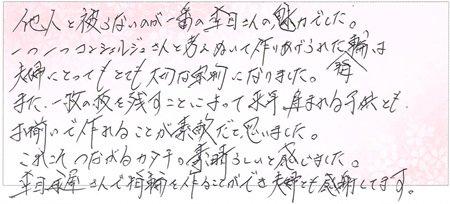 他人と被らないのが一番の杢目さんの魅力でした。
一つ一つコンシェルジュさんと考えぬいて作りあげられた指輪は
夫婦にとってもとても大切な家宝になりました。
また、一枚の板を残すことによって来年産まれる子供とも
お揃いで作れることが素敵だと思いました。
これこそつながるカタチの素晴らしいと感じました。
杢目金屋さんで指輪を作ることができ夫婦とも感謝してます。